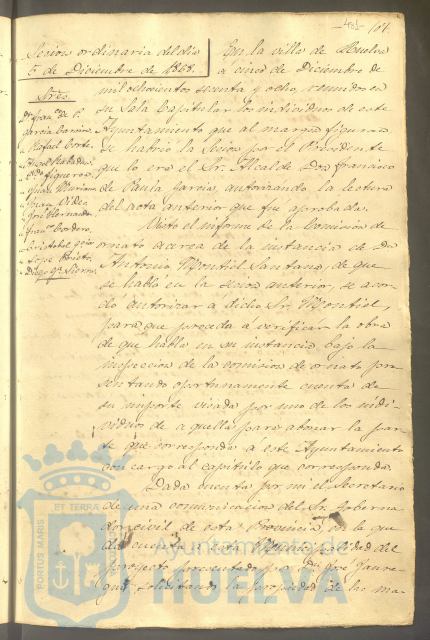 101
Sesion ordinaria del dia
5 de Diciembre de 1868.
Sres.
Dn Fran.co de P.
Garcia
Rafael Corte
José Hernand
Fran.co Cordero
Cristobal
Lope Prieto
Diego Ga Sierra
En la villa de Huelva
a cinco de Diciembre de
mil ochocientos sesenta y ocho, reunidos en
su Sala Capitular los individuos de este
Ayuntamiento que al margen figuran
se habrió la Sesion por el Presidente
que lo era el Sr. Alcalde Don Francisco
de Paula Garcia, autorizando la lectura
del acta anterior que fue aprobada.
Visto el informe de la Comision de
ornato acerca de la instancia de Dn
Antonio Montiel Santana, de que
se habló en la sesion anterior, se acor-
dó autorizar a dicho Sr. Montiel,
para que proceda a verificar la obra
de que habla en su instancia, bajo la
inspeccion de la comision de ornato pre
sentando oportunamente cuenta de
su importe visada por uno de los indi-
viduos de aquella para abonar la par
te que corresponda a este Ayuntamiento
con cargo al capitulo que corresponda.
Dada cuenta por mi el Secretario
de una comunicacion del Sr. Goberna
dor civil de esta Provincia, en la que
da cuenta a esta Municipalidad del
proyecto presentado por Dn José Jaure
gui, solicitando la propiedad de las ma-
PORTUS MARIS
ET TERRÆ
Ayuntamiento de
HUELVA